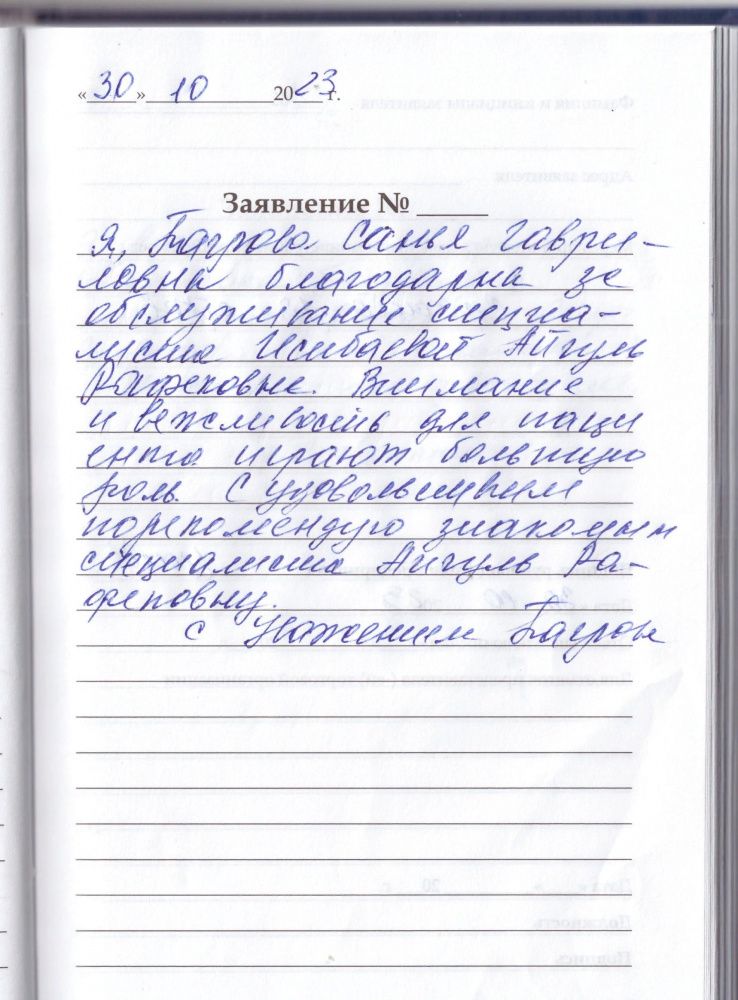 «30» 10 2023 г.
Заявление №
Я, Багрова Санья Гаври-
ловна благодарна за
обслуживание специа-
листа Исибаевой Айгуль
Рафековне. Внимание
и вежливость для паци
ента играют большую
роль. С удовольствием
порекомендую знакомым
специалиста Айгуль Ра-
фековну.
с Уважением Багрова